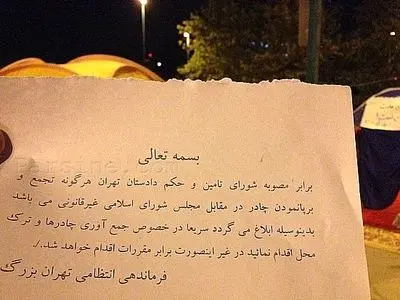 بسمه تعالی
برابر مصوبه شورای تامین و حکم دادستان تهران هرگونه تجمع و
برپانمودن چادر در مقابل مجلس شورای اسلامی غیرقانونی می باشد
بدینوسیله ابلاغ می گردد سریعا در خصوص جمع آوری چادرها و ترک
محل اقدام نمائید در غیر اینصورت برابر مقررات اقدام خواهد شد./.
فرماندهی انتظامی تهران بزرگ